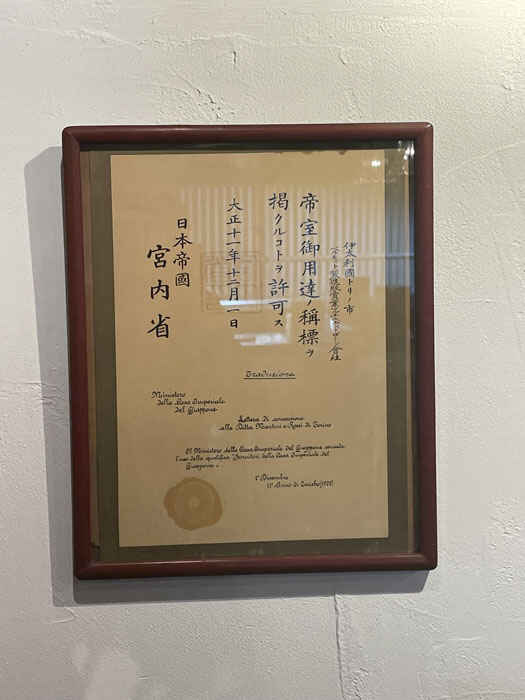 伊太利國トリノ市
帝室御用達ノ稱標ヲ
掲クルコトヲ許可ス
大正十一年十二月一日
日本帝國
宮内省
Traduzione
Ministero
della Casa Imperiale
del Giappone
Lettera di concessione
alla Ditta Martini e Rossi di Torino
Il Ministero della Casa Imperiale del Giappone concede
l'uso della qualifica "Fornitori della Casa Imperiale del
Giappone".
1° Dicembre
11° Anno di Taisho (1922)